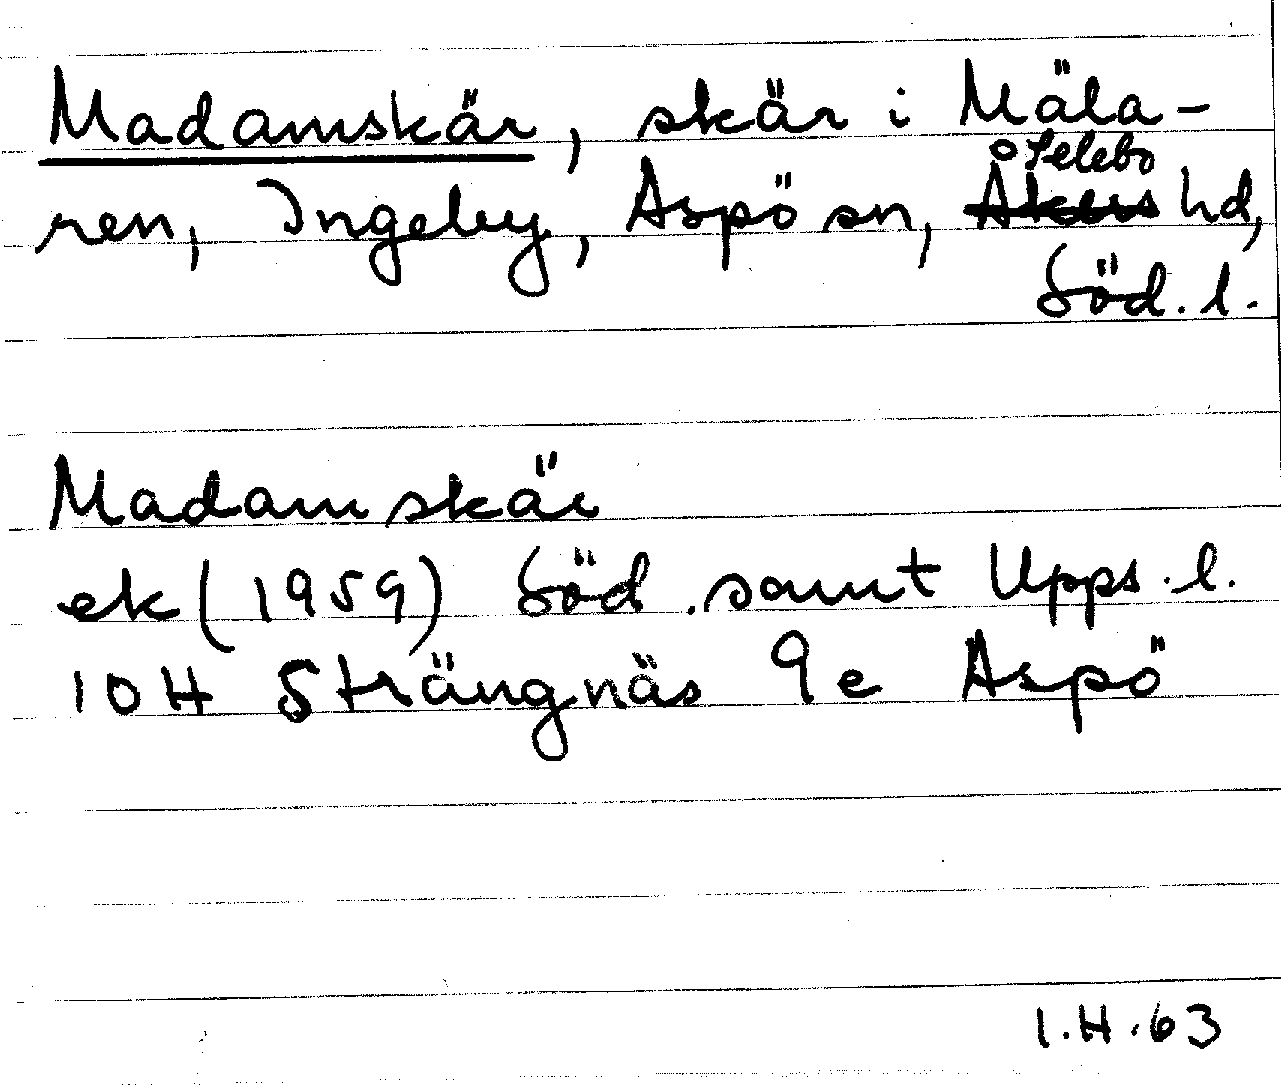 Madamskär, skär i Mäla-
Selebo
ren, Ingeby, Aspö sn, Åkers hd,
Söd. l.
Madamskär
ek (1959) Söd. samt Upps. l.
10H Strängnäs 9e Aspö
I.H.63